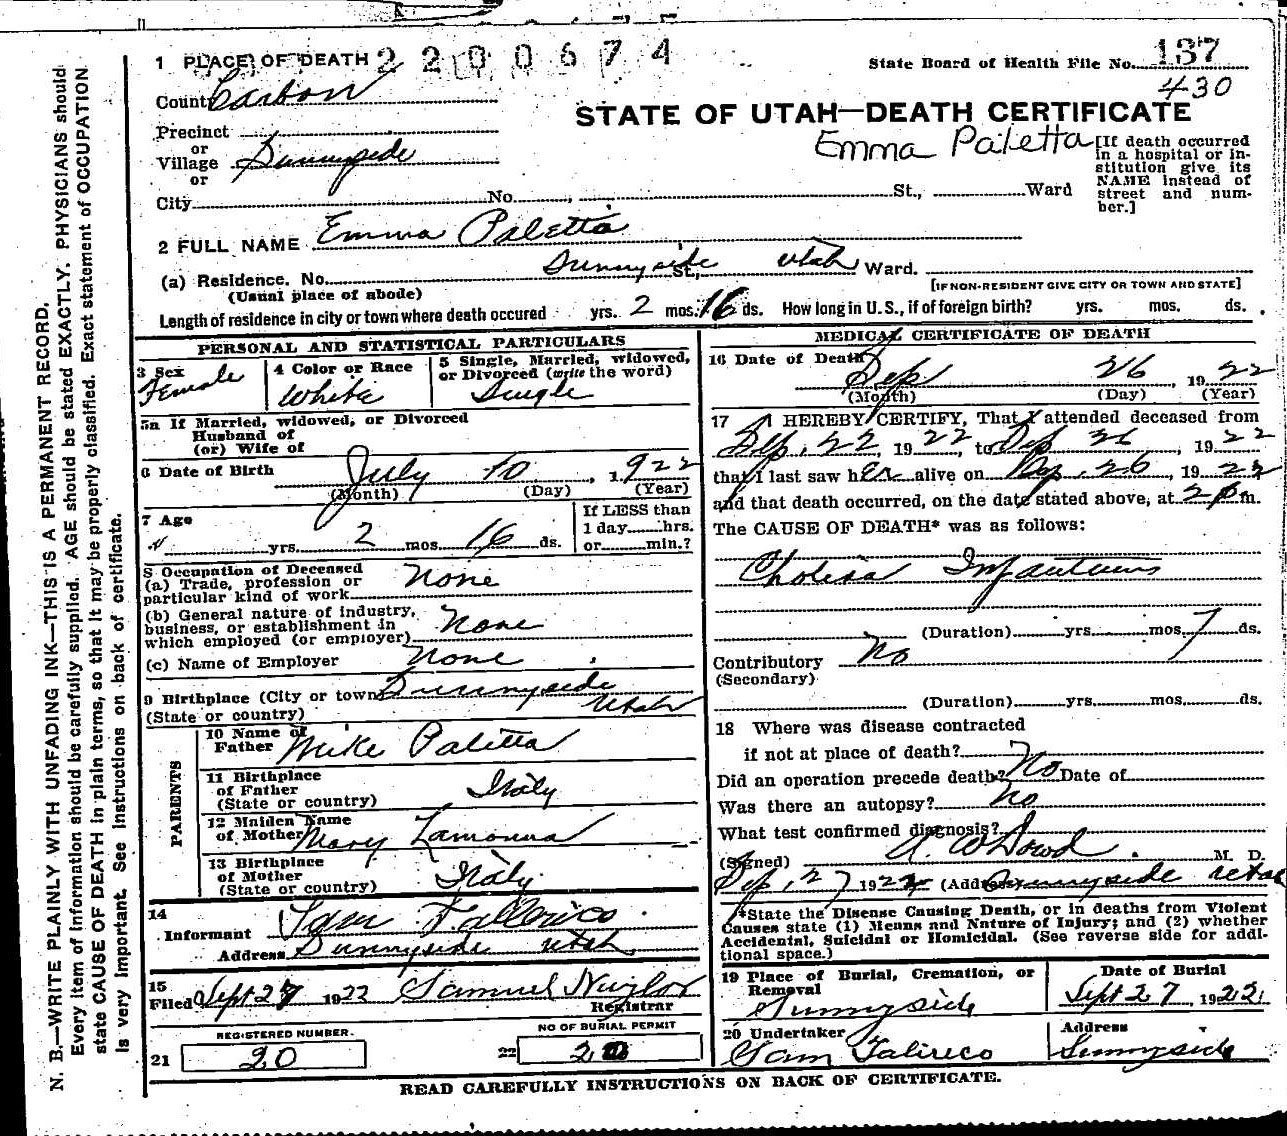 1 PLACE OF DEATH 2200674
State Board of Health File No. 137
430
County Carbon
STATE OF UTAH—DEATH CERTIFICATE
Precinct
or
Village Sunnyside
or
City No. St., Ward
Emma Paletta
[If death occurred in a hospital or institution give its NAME instead of street and number.]
2 FULL NAME Emma Paletta
(a) Residence. No. Sunnyside St., Utah Ward.
(Usual place of abode) [IF NON-RESIDENT GIVE CITY OR TOWN AND STATE]
Length of residence in city or town where death occured yrs. 2 mos. 16 ds. How long in U.S., if of foreign birth? yrs. mos. ds.
PERSONAL AND STATISTICAL PARTICULARS
3 Sex Female
4 Color or Race White
5 Single, Married, widowed, or Divorced (write the word) Single
5a If Married, widowed, or Divorced
Husband of
(or) Wife of
6 Date of Birth July 10, 1922
(Month) (Day) (Year)
7 Age
yrs. 2 mos. 16 ds.
If LESS than
1 day hrs.
or min.?
8 Occupation of Deceased
(a) Trade, profession or
particular kind of work None
(b) General nature of industry,
business, or establishment in
which employed (or employer) None
(c) Name of Employer None
9 Birthplace (City or town) Sunnyside
(State or country) Utah
PARENTS
10 Name of
Father Mike Paletta
11 Birthplace
of Father
(State or country) Italy
12 Maiden Name
of Mother Mary
13 Birthplace
of Mother
(State or country) Italy
14
Informant Sam
Address Sunnyside Utah
15
Filed Sept 27 1922 Samuel Naylor
Registrar
REGISTERED NUMBER.
21 20
NO OF BURIAL PERMIT
22
MEDICAL CERTIFICATE OF DEATH
16 Date of Death Sep 26, 1922
(Month) (Day) (Year)
17 I HEREBY CERTIFY, That I attended deceased from
Sep, 22, 1922, to Sep 26, 1922
that I last saw her alive on Sep, 26, 1922
and that death occurred, on the date stated above, at 2 p m.
The CAUSE OF DEATH* was as follows:
Cholera Infantum
(Duration) yrs. mos. 7 ds.
Contributory No
(Secondary)
(Duration) yrs. mos. ds.
18 Where was disease contracted
if not at place of death?
Did an operation precede death? No Date of
Was there an autopsy? No
What test confirmed diagnosis?
(Signed) A. W. Dowd M. D.
Sep, 27, 1922 (Address) Sunnyside Utah
*State the Disease Causing Death, or in deaths from Violent
Causes state (1) Means and Nature of Injury; and (2) whether
Accidental, Suicidal or Homicidal. (See reverse side for additional space.)
19 Place of Burial, Cremation, or
Removal
Sunnyside
Date of Burial
Sept 27, 1922
20 Undertaker
Sam
Address
Sunnyside
READ CAREFULLY INSTRUCTIONS ON BACK OF CERTIFICATE.
N. B.—WRITE PLAINLY WITH UNFADING INK—THIS IS A PERMANENT RECORD.
Every item of information should be carefully supplied. AGE should be stated EXACTLY. PHYSICIANS should
state CAUSE OF DEATH in plain terms, so that it may be properly classified. Exact statement of OCCUPATION
is very important. See instructions on back of certificate.